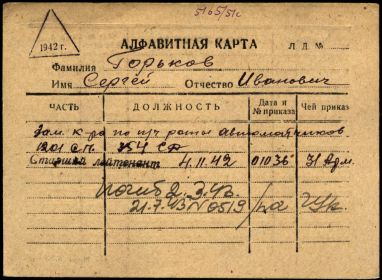 5165/51с
1942 г.
АЛФАВИТНАЯ КАРТА
Л Д №
Фамилия Горьков
Имя Сергей Отчество Иванович
ЧАСТЬ ДОЛЖНОСТЬ Дата и № приказа Чей приказ
Зам. к-ра по п/ч роты автоматчиков
1201 СП. 354 СД
Старший лейтенант 4.11.42 01036 31 Адм.
погиб 2.3.43
21.7.43 N 0519